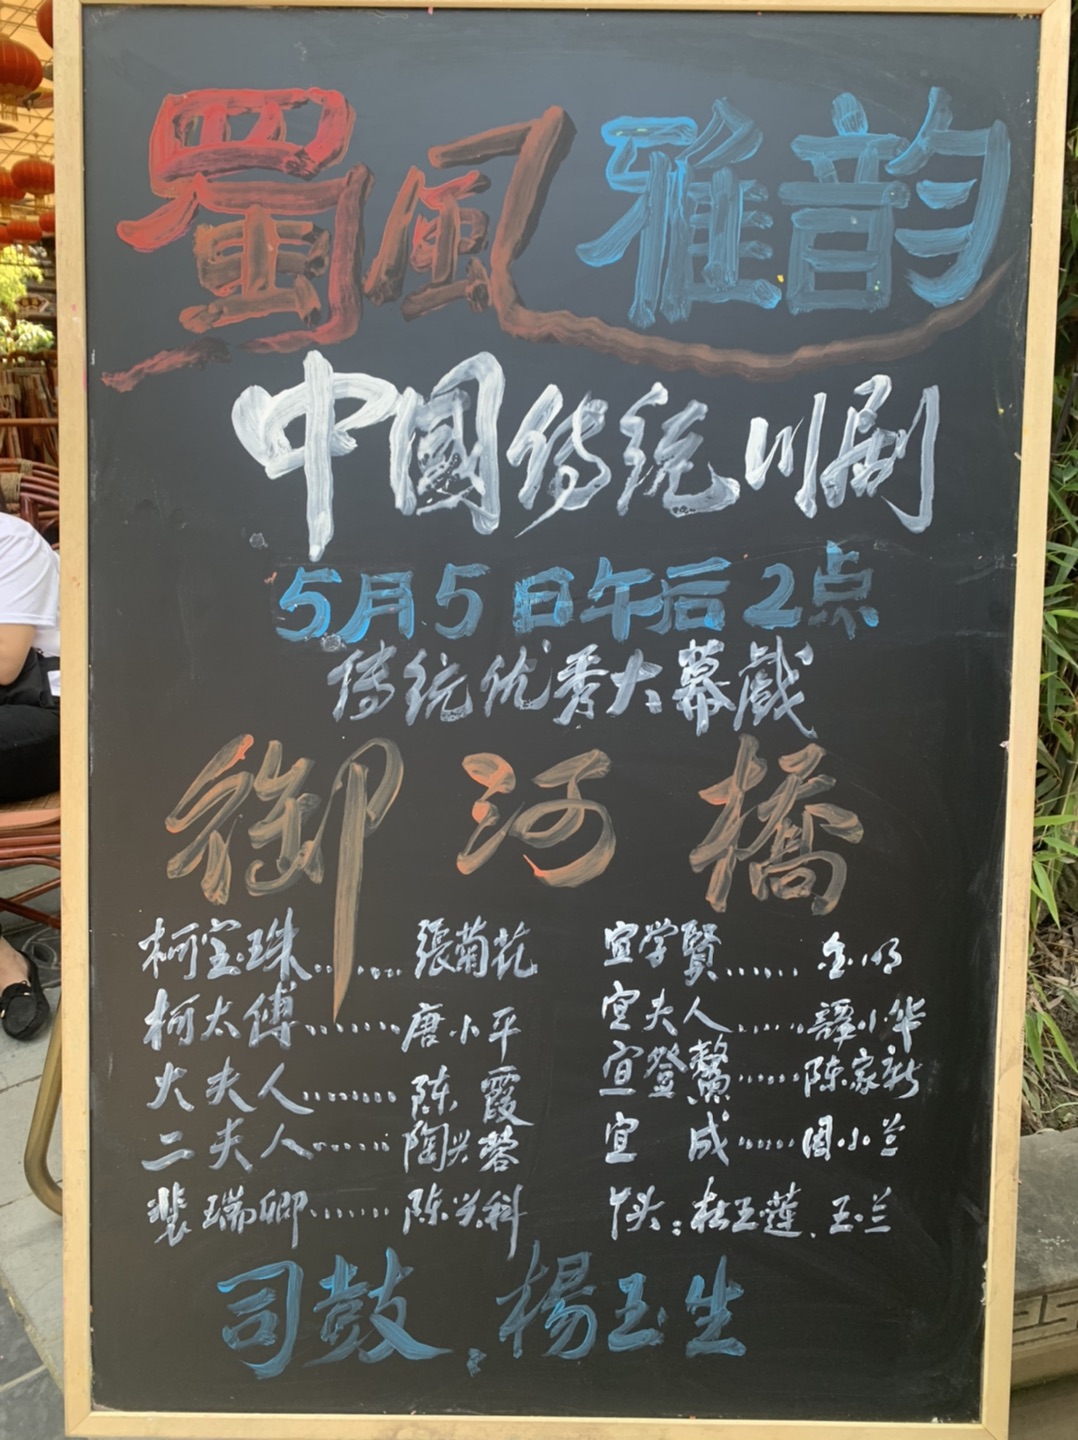 蜀風雅韵
中國传统川剧
5月5日午后2点
传统优秀大幕戯
御河橋
柯宝珠……張菊花
柯太傅……唐小平
大夫人……陈霞
二夫人……陶兴蓉
裴瑞卿……陈兴科
宣学賢……
宣夫人……譚小华
宣登鰲……陈家新
宣成……周小兰
丫头：杜玉莲、玉兰
司鼓：楊玉生